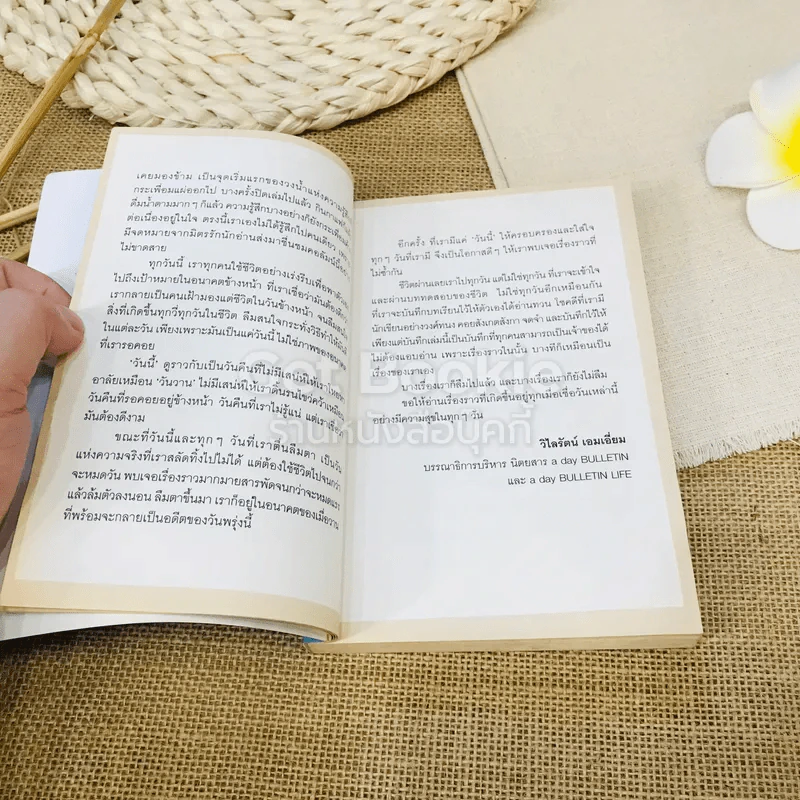 เคยมองข้าม เป็นจุดเริ่มแรกของวงน้ำแห่งความรู้สึก
กระเพื่อมแผ่ออกไป บางครั้งปิดเล่มไปแล้ว กินกาแฟ
ดื่มน้ำตามมากๆ ก็แล้ว ความรู้สึกบางอย่างก็ยังกระเพื่อม
ต่อเนื่องอยู่ในใจ ตรงนี้เราเองไม่ได้รู้สึกไปคนเดียว
มีจดหมายจากมิตรรักนักอ่านส่งมาชื่นชมคอลัมน์นี้
ไม่ขาดสาย
ทุกวันนี้ เราทุกคนใช้ชีวิตอย่างเร่งรีบเพื่อพา
ไปถึงเป้าหมายในอนาคตข้างหน้า ที่เราเชื่อว่ามันต้องดี
เรากลายเป็นคนเฝ้ามองแต่ชีวิตในวันข้างหน้า จนลืม
สิ่งที่เกิดขึ้นทุกวี่ทุกวันในชีวิต ลืมสนใจกระทั่งวิธีทำให้
ในแต่ละวัน เพียงเพราะมันเป็นแค่วันนี้ ไม่ใช่ภาพของอนาคต
ที่เรารอคอย
'วันนี้' ดูราวกับเป็นวันคืนที่ไม่มีเสน่ห์ให้เราโหยหา
อาลัยเหมือน 'วันวาน' ไม่มีเสน่ห์ให้เราดิ้นรนไขว่คว้าเหมือน
วันคืนที่รอคอยอยู่ข้างหน้า วันคืนที่เราไม่รู้แน่ แต่เราเชื่อว่า
มันต้องดีงาม
ขณะที่วันนี้และทุกๆ วันที่เราตื่นลืมตา เป็นวัน
แห่งความจริงที่เราสลัดทิ้งไปไม่ได้ แต่ต้องใช้ชีวิตไปจนกว่า
จะหมดวัน พบเจอเรื่องราวมากมายสารพัดจนกว่าจะหมดแรง
แล้วล้มตัวลงนอน ลืมตาขึ้นมา เราก็อยู่ในอนาคตของเมื่อวาน
ที่พร้อมจะกลายเป็นอดีตของวันพรุ่งนี้
อีกครั้ง ที่เรามีแค่ 'วันนี้' ให้ครอบครองและใส่ใจ
ทุกๆ วันที่เรามี จึงเป็นโอกาสดีๆ ให้เราพบเจอเรื่องราวที่
ไม่ซ้ำกัน
ชีวิตผ่านเลยเราไปทุกวัน แต่ไม่ใช่ทุกวัน ที่เราจะเข้าใจ
และผ่านบททดสอบของชีวิต ไม่ใช่ทุกวันอีกเหมือนกัน
ที่เราจะบันทึกบทเรียนไว้ให้ตัวเองได้อ่านทวน โชคดีที่เรามี
นักเขียนอย่างวงศ์ทนง คอยสังเกตสังกา จดจำ และบันทึกไว้ให้
เพียงแต่บันทึกเล่มนี้เป็นบันทึกที่ทุกคนสามารถเป็นเจ้าของได้
ไม่ต้องแอบอ่าน เพราะเรื่องราวในนั้น บางทีก็เหมือนเป็น
เรื่องของเราเอง
บางเรื่องเราก็ลืมไปแล้ว และบางเรื่องเราก็ยังไม่ลืม
ขอให้อ่านเรื่องราวที่เกิดขึ้นอยู่ทุกเมื่อเชื่อวันเหล่านี้
อย่างมีความสุขในทุกๆ วัน
วิไลรัตน์ เอมเอี่ยม
บรรณาธิการบริหาร นิตยสาร a day BULLETIN
และ a day BULLETIN LIFE
Got Bookie
ร้านหนังสือบุคกี้